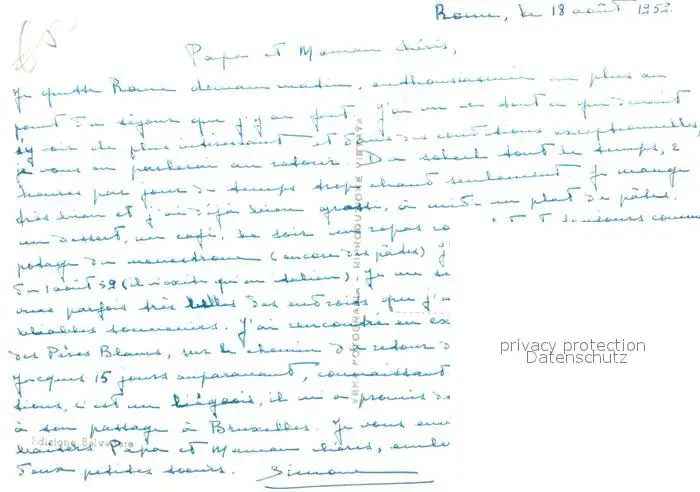 Rome, le 18 août 1952
Papa et Maman chéris,
Je quitte Rome demain matin, enthousiasmée au plus au
point du séjour que j'y ai fait, j'ai vu tout ce qui devait
s'y voir de plus intéressant et dans des conditions exceptionnelles,
je vous en parlerai au retour. Du soleil tout le temps, 2
heures par jour du temps trop chaud seulement. Je mange
très bien et j'ai déjà bien grossi, à midi un plat de pâtes,
un dessert, un café, le soir un repas
toujours comme
potage du menestrone (encore des pâtes)
du 1 août 52 (il n'existe qu'en italien). Je
vues parfois très belles des endroits que j'
véritables souvenirs. J'ai rencontré en
des Pères Blancs, sur le chemin du retour
Jacques 15 jours auparavant, connaissant
c'est un liégeois, il m'a promis
à son passage à Bruxelles. Je vous
baisers Papa et Maman chéris,
deux petites soeurs. Simone
VERA FOTOGRAFIA - RIPRODUZIONE VIETATA
Edizione Belvedere
privacy protection
Datenschutz